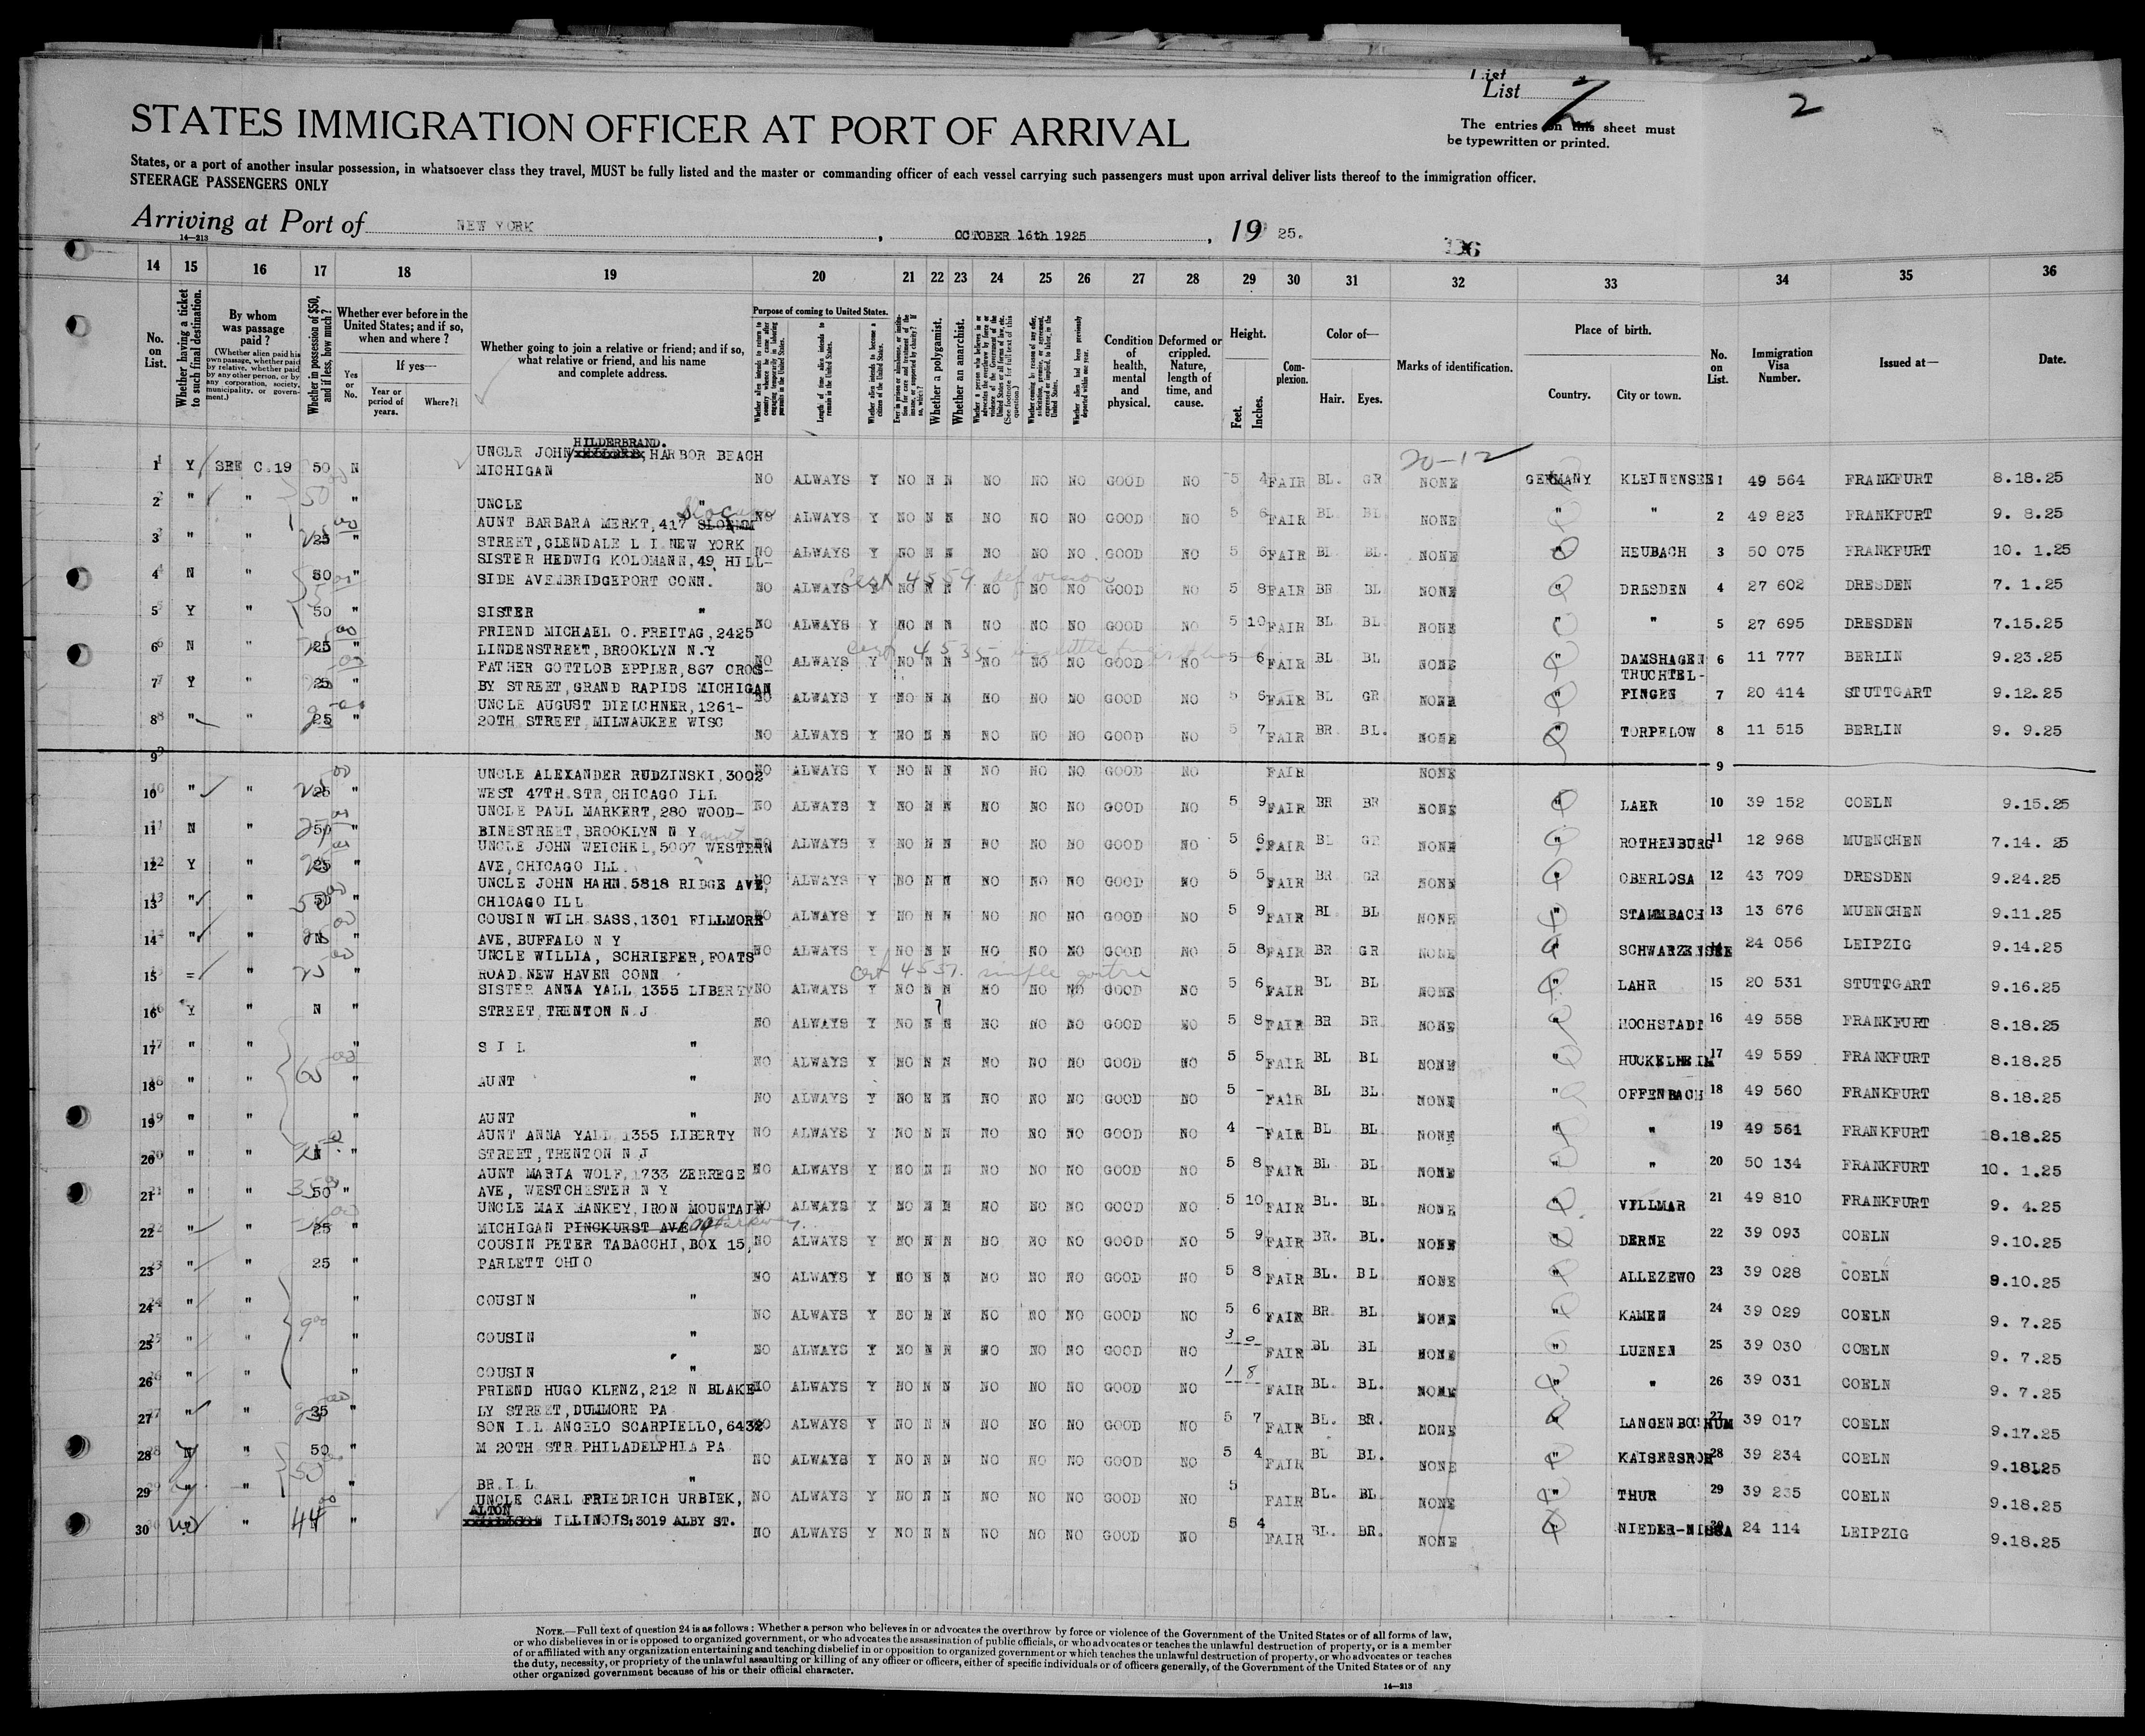 List
List 2
2
STATES IMMIGRATION OFFICER AT PORT OF ARRIVAL
The entries on this sheet must
be typewritten or printed.
States, or a port of another insular possession, in whatsoever class they travel, MUST be fully listed and the master or commanding officer of each vessel carrying such passengers must upon arrival deliver lists thereof to the immigration officer.
STEERAGE PASSENGERS ONLY
Arriving at Port of NEW YORK, OCTOBER 16th 1925, 19 25.
14—213
14 15 16 17 18 19 20 21 22 23 24 25 26 27 28 29 30 31 32 33 34 35 36
No. on List.
Whether having a ticket to such final destination.
By whom was passage paid?
(Whether alien paid his own passage, whether paid by relative, whether paid by any other person, or by any corporation, society, municipality, or government.)
Whether in possession of $50, and if less, how much?
Whether ever before in the United States; and if so, when and where?
If yes—
Yes or No.
Year or period of years.
Where?
Whether going to join a relative or friend; and if so, what relative or friend, and his name and complete address.
Purpose of coming to United States.
Whether alien intends to return to country whence he came after engaging temporarily in laboring pursuits in the United States.
Length of time alien intends to remain in the United States.
Whether alien intends to become a citizen of the United States.
Whether a polygamist.
Whether an anarchist.
Condition of health, mental and physical.
Deformed or crippled. Nature, length of time, and cause.
Height.
Feet. Inches.
Complexion.
Color of—
Hair. Eyes.
Marks of identification.
Place of birth.
Country. City or town.
No. on List.
Immigration Visa Number.
Issued at—
Date.
20-12
1 Y SEE C.19 50 N UNCLR JOHN HILDERBRAND. HARBOR BEACH MICHIGAN NO ALWAYS Y NO N N NO NO NO GOOD NO 5 4 FAIR BL. GR NONE GERMANY KLEINENSEE 1 49 564 FRANKFURT 8.18.25
2 " " 50 " UNCLE " NO ALWAYS Y NO N N NO NO NO GOOD NO 5 6 FAIR BL BL NONE " " 2 49 823 FRANKFURT 9. 8.25
3 " " 25 " AUNT BARBARA MERKT, 417 Slocum STREET, GLENDALE L I NEW YORK NO ALWAYS Y NO N N NO NO NO GOOD NO 5 6 FAIR BL BL. NONE " HEUBACH 3 50 075 FRANKFURT 10. 1.25
cert 4559. def vision
4 N " 50 " SISTER HEDWIG KOLOMANN, 49 HILL-SIDE AVE. BRIDGEPORT CONN. NO ALWAYS Y NO N N NO NO NO GOOD NO 5 8 FAIR BR BL NONE " DRESDEN 4 27 602 DRESDEN 7. 1.25
5 Y " 50 " SISTER " NO ALWAYS Y NO N N NO NO NO GOOD NO 5 10 FAIR BL BL NONE " " 5 27 695 DRESDEN 7.15.25
cert 4535
6 N " 25 " FRIEND MICHAEL O. FREITAG, 2425 LINDENSTREET, BROOKLYN N.Y NO ALWAYS Y NO N N NO NO NO GOOD NO 5 6 FAIR BL BL NONE " DAMSHAGEN 6 11 777 BERLIN 9.23.25
7 Y " 25 " FATHER GOTTLOB EPPLER, 867 CROS-BY STREET, GRAND RAPIDS MICHIGAN NO ALWAYS Y NO N N NO NO NO GOOD NO 5 6 FAIR BL GR. NONE " TRUCHTEL-FINGEN 7 20 414 STUTTGART 9.12.25
8 " " 25 " UNCLE AUGUST DIELCHNER, 1261-20TH STREET, MILWAUKEE WISC NO ALWAYS Y NO N N NO NO NO GOOD NO 5 7 FAIR BR. BL. NONE " TORPELOW 8 11 515 BERLIN 9. 9.25
9 NO ALWAYS Y NO N N NO NO NO GOOD NO FAIR NONE 9
10 " " 25 " UNCLE ALEXANDER RUDZINSKI, 3002 WEST 47TH STR, CHICAGO ILL NO ALWAYS Y NO N N NO NO NO GOOD NO 5 9 FAIR BR BR NONE " LAER 10 39 152 COELN 9.15.25
11 N " 50 " UNCLE PAUL MARKERT, 280 WOOD-BINESTREET, BROOKLYN N Y NO ALWAYS Y NO N N NO NO NO GOOD NO 5 6 FAIR BL GR NONE " ROTHENBURG 11 12 968 MUENCHEN 7.14. 25
12 Y " 25 " UNCLE JOHN WEICHEL, 5007 WESTERN AVE, CHICAGO ILL. NO ALWAYS Y NO N N NO NO NO GOOD NO 5 5 FAIR BR. GR NONE " OBERLOSA 12 43 709 DRESDEN 9.24.25
13 " " 50 " UNCLE JOHN HAHN, 5818 RIDGE AVE, CHICAGO ILL NO ALWAYS Y NO N N NO NO NO GOOD NO 5 9 FAIR BL BL NONE " STAMMBACH 13 13 676 MUENCHEN 9.11.25
14 " " 25 " COUSIN WILH. SASS, 1301 FILLMORE AVE, BUFFALO N Y NO ALWAYS Y NO N N NO NO NO GOOD NO 5 8 FAIR BR GR NONE " 24 056 LEIPZIG 9.14.25
cert 4537. simple goitre
15 = " 25 " UNCLE WILLIA, SCHRIEFER, FOATS ROAD NEW HAVEN CONN NO ALWAYS Y NO N N NO NO NO GOOD NO 5 6 FAIR BL BL NONE " LAHR 15 20 531 STUTTGART 9.16.25
16 Y " N " SISTER ANNA YALL 1355 LIBERTY STREET, TRENTON N.J NO ALWAYS Y NO N N NO NO NO GOOD NO 5 8 FAIR BR BR. NONE " HOCHSTADT 16 49 558 FRANKFURT 8.18.25
17 " " " S I L " NO ALWAYS Y NO N N NO NO NO GOOD NO 5 5 FAIR BL BL NONE " HUCKELHEIM 17 49 559 FRANKFURT 8.18.25
18 " " 65 " AUNT " NO ALWAYS Y NO N N NO NO NO GOOD NO 5 - FAIR BL BL. NONE " OFFENBACH 18 49 560 FRANKFURT 8.18.25
19 " " " AUNT " NO ALWAYS Y NO N N NO NO NO GOOD NO 4 - FAIR BL BL NONE " " 19 49 561 FRANKFURT 8.18.25
20 " " N " AUNT ANNA YALL 1355 LIBERTY STREET, TRENTON N J NO ALWAYS Y NO N N NO NO NO GOOD NO 5 8 FAIR BL BL NONE " " 20 50 134 FRANKFURT 10. 1.25
21 " " 50 " AUNT MARIA WOLF, 1733 ZERREGE AVE, WESTCHESTER N Y NO ALWAYS Y NO N N NO NO NO GOOD NO 5 10 FAIR BL. BL. NONE " VILLMAR 21 49 810 FRANKFURT 9. 4.25
22 " " 25 " UNCLE MAX MANKEY, IRON MOUNTAIN MICHIGAN PINGKURST AVE NO ALWAYS Y NO N N NO NO NO GOOD NO 5 9 FAIR BR. BL. NONE " DERNE 22 39 093 COELN 9.10.25
23 " " 25 " COUSIN PETER TABACCHI, BOX 15, PARLETT OHIO NO ALWAYS Y NO N N NO NO NO GOOD NO 5 8 FAIR BL. BL NONE " ALLEZEWO 23 39 028 COELN 9.10.25
24 " " " COUSIN " NO ALWAYS Y NO N N NO NO NO GOOD NO 5 6 FAIR BR. BL NONE " KAMEN 24 39 029 COELN 9. 7.25
25 " " " COUSIN " NO ALWAYS Y NO N N NO NO NO GOOD NO 3 0 FAIR BL BL NONE " LUENEN 25 39 030 COELN 9. 7.25
26 " " " COUSIN " NO ALWAYS Y NO N N NO NO NO GOOD NO 1 8 FAIR BL. BL. NONE " " 26 39 031 COELN 9. 7.25
27 " " 35 " FRIEND HUGO KLENZ, 212 N BLAKE LY STREET, DUMMORE PA NO ALWAYS Y NO N N NO NO NO GOOD NO 5 7 FAIR BL. BR. NONE " LANGENBOCHUM 27 39 017 COELN 9.17.25
28 " 50 " SON I L ANGELO SCARPIELLO, 6432 M 20TH STR PHILADELPHIA PA NO ALWAYS Y NO N N NO NO NO GOOD NO 5 4 FAIR BL BL. NONE " 28 39 234 COELN 9.18.25
29 " " " BR. I L " NO ALWAYS Y NO N N NO NO NO GOOD NO 5 FAIR BL. BL NONE " THUR 29 39 235 COELN 9.18.25
30 " 44 " UNCLE CARL FRIEDRICH URBIEK, ALTON ILLINOIS: 3019 ALBY ST. NO ALWAYS Y NO N N NO NO NO GOOD NO 5 4 FAIR BL. BR. NONE " 30 24 114 LEIPZIG 9.18.25
NOTE.—Full text of question 24 is as follows: Whether a person who believes in or advocates the overthrow by force or violence of the Government of the United States or of all forms of law,
or who disbelieves in or is opposed to organized government, or who advocates the assassination of public officials, or who advocates or teaches the unlawful destruction of property, or is a member
of or affiliated with any organization entertaining and teaching disbelief in or opposition to organized government or which teaches the unlawful destruction of property, or who advocates or teaches
the duty, necessity, or propriety of the unlawful assaulting or killing of any officer or officers, either of specific individuals or of officers generally, of the Government of the United States or of any
other organized government because of his or their official character.
14—213